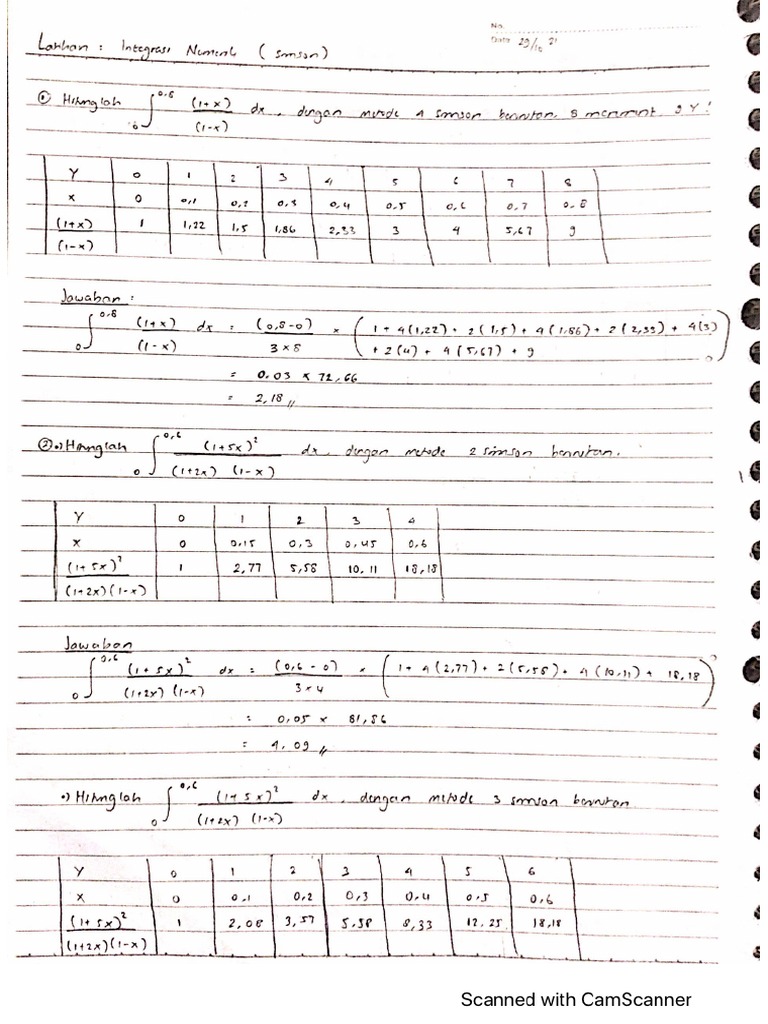 No.
Date 29/10 21
Latihan : Integrasi Numerik ( simson )
① Hitunglah ∫₀^0,8 (1+x)/(1-x) dx, dengan metode 4 simson berurutan. 8 9 Y!
Y 0 1 2 3 4 5 6 7 8
x 0 0,1 0,2 0,3 0,4 0,5 0,6 0,7 0,8
(1+x)/(1-x) 1 1,22 1,5 1,86 2,33 3 4 5,67 9
Jawaban :
∫₀^0,8 (1+x)/(1-x) dx = (0,8-0)/(3×8) × ( 1 + 4(1,22) + 2(1,5) + 4(1,86) + 2(2,33) + 4(3)
+ 2(4) + 4(5,67) + 9 )
= 0,03 × 72,66
= 2,18 //
② •) Hitunglah ∫₀^0,6 (1+5x)²/(1+2x)(1-x) dx, dengan metode 2 simson berurutan.
Y 0 1 2 3 4
x 0 0,15 0,3 0,45 0,6
(1+5x)²/(1+2x)(1-x) 1 2,77 5,58 10,11 18,18
Jawaban
∫₀^0,6 (1+5x)²/(1+2x)(1-x) dx = (0,6-0)/(3×4) × ( 1 + 4(2,77) + 2(5,58) + 4(10,11) + 18,18 )
= 0,05 × 81,86
= 4,09 //
•) Hitunglah ∫₀^0,6 (1+5x)²/(1+2x)(1-x) dx, dengan metode 3 simson berurutan
Y 0 1 2 3 4 5 6
x 0 0,1 0,2 0,3 0,4 0,5 0,6
(1+5x)²/(1+2x)(1-x) 1 2,08 3,57 5,58 8,33 12,25 18,18
Scanned with CamScanner